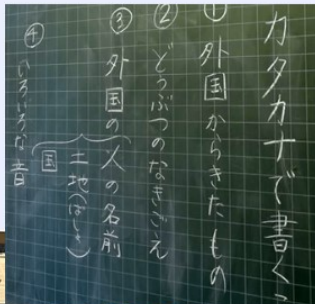 カタカナで書く
① 外国からきたもの
② どうぶつのなきごえ
③ 外国の人の名前
土地(ばしょ)
国
④ いろいろな音